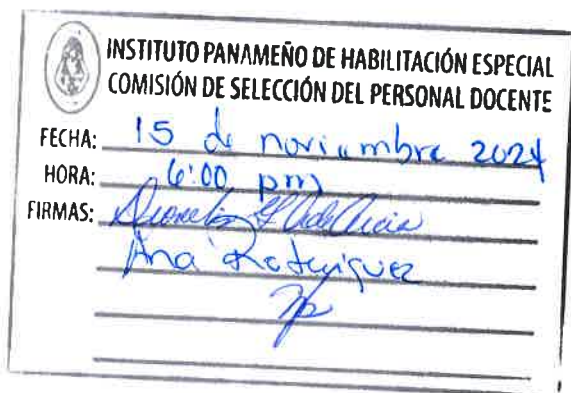 INSTITUTO PANAMEÑO DE HABILITACIÓN ESPECIAL
COMISIÓN DE SELECCIÓN DEL PERSONAL DOCENTE
FECHA: 15 de noviembre 2024
HORA: 6:00 pm
FIRMAS:
Ana Rodríguez